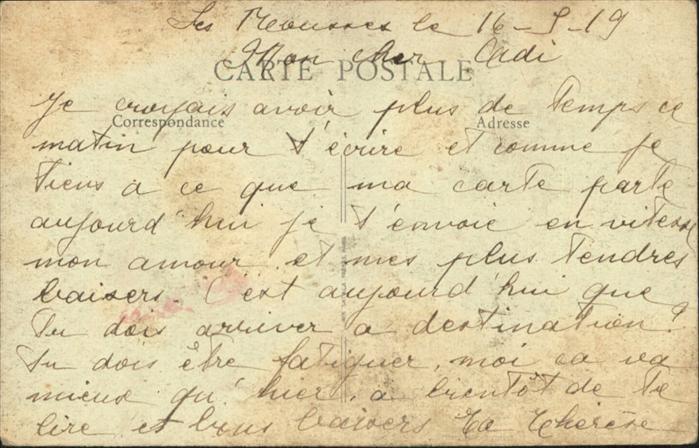 Les Rousses le 16-9-19
Mon cher Adi
CARTE POSTALE
Je croyais avoir plus de temps ce
Correspondance
Adresse
matin pour t'écrire et comme je
tiens à ce que ma carte parte
aujourd'hui je t'envoie en vitesse
mon amour et mes plus tendres
baisers. C'est aujourd'hui que
tu dois arriver a destination?
Tu dois être fatiguer, moi ca va
mieux qu'hier, a bientôt de te
lire et bons baisers Ta Thérèse